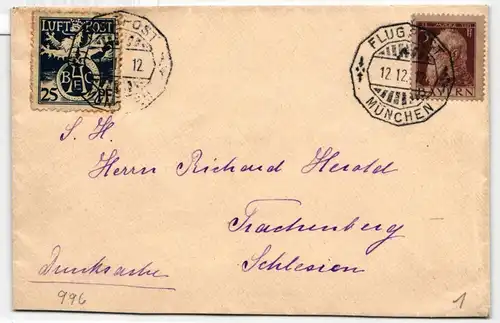 LUFT POST
BAEC
25 PF
POST
12
FLUGPOST
12.12.
MÜNCHEN
BAYERN
S. H.
Herrn Richard Herold
Trachenberg
Schlesien
Drucksache
996
1